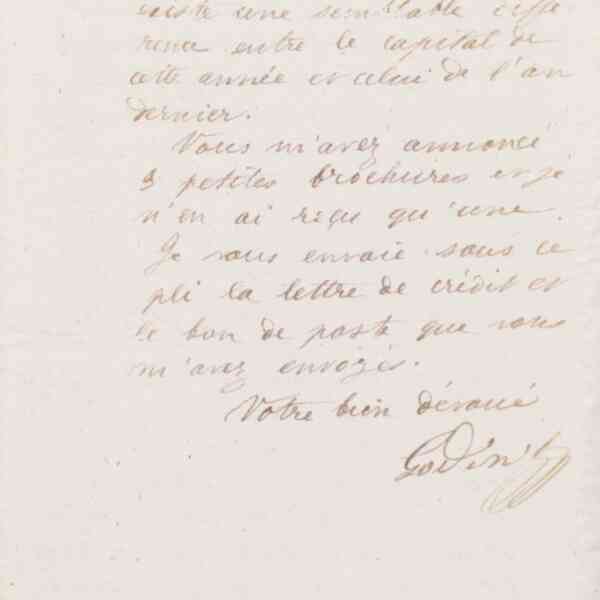 existe une semblable diffé
rence entre le capital de
cette année et celui de l'an
dernier.
Vous m'avez annoncé
3 petites brochures et je
n'en ai reçu qu'une.
Je vous envoie sous ce
pli la lettre de crédit et
le bon de poste que vous
m'avez envoyés.
Votre bien dévoué
Godin